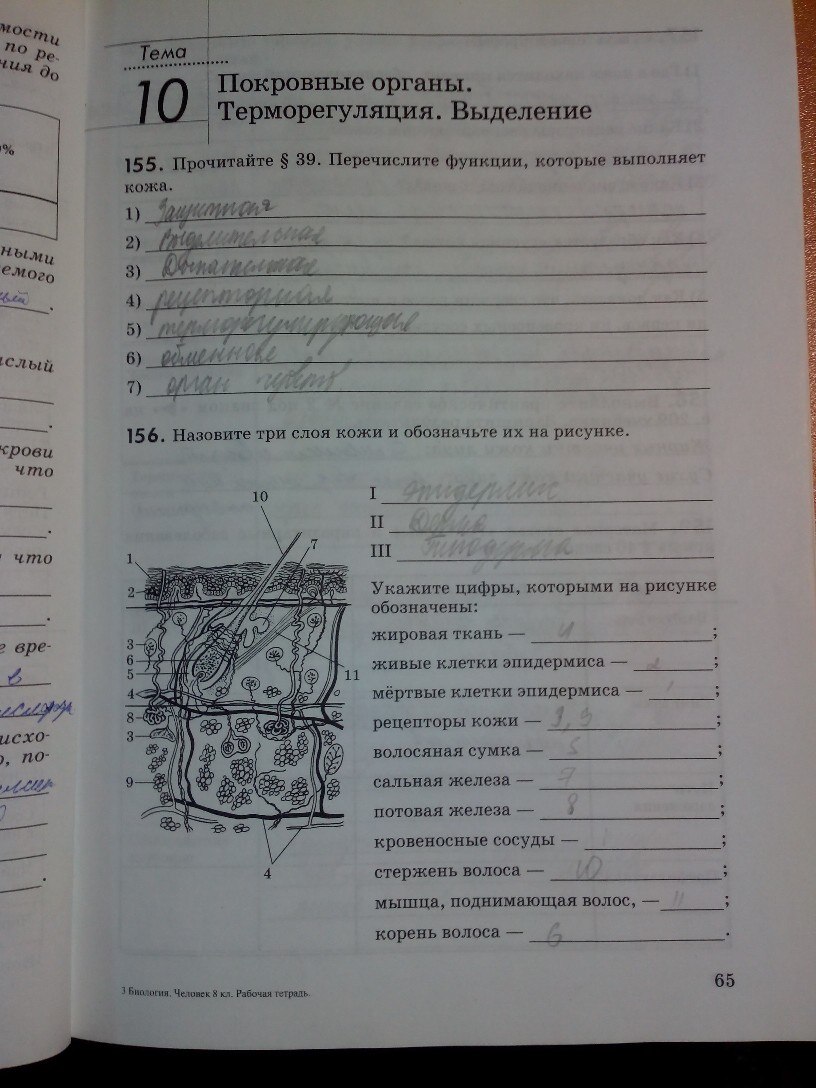 мости
по ре-
ния до
%
ными
емого
ый
ислый
крови
что
что
е вре-
в
исхо-
о, по-
Тема
10
Покровные органы.
Терморегуляция. Выделение
155. Прочитайте § 39. Перечислите функции, которые выполняет
кожа.
1) Защитная
2) выделительная
3) Дыхательная
4) рецепторная
5) терморегулирующая
6) обменное
7) орган чувств
156. Назовите три слоя кожи и обозначьте их на рисунке.
I эпидермис
II Дерма
III Гиподерма
Укажите цифры, которыми на рисунке
обозначены:
жировая ткань — ;
живые клетки эпидермиса — 2 ;
мёртвые клетки эпидермиса — 1 ;
рецепторы кожи — , 3 ;
волосяная сумка — 5 ;
сальная железа — 7 ;
потовая железа — 8 ;
кровеносные сосуды — ;
стержень волоса — 10 ;
мышца, поднимающая волос, — 11 ;
корень волоса — 6 .
10
7
1
2
3
6
5
11
4
8
3
9
4
3 Биология. Человек 8 кл. Рабочая тетрадь.
65